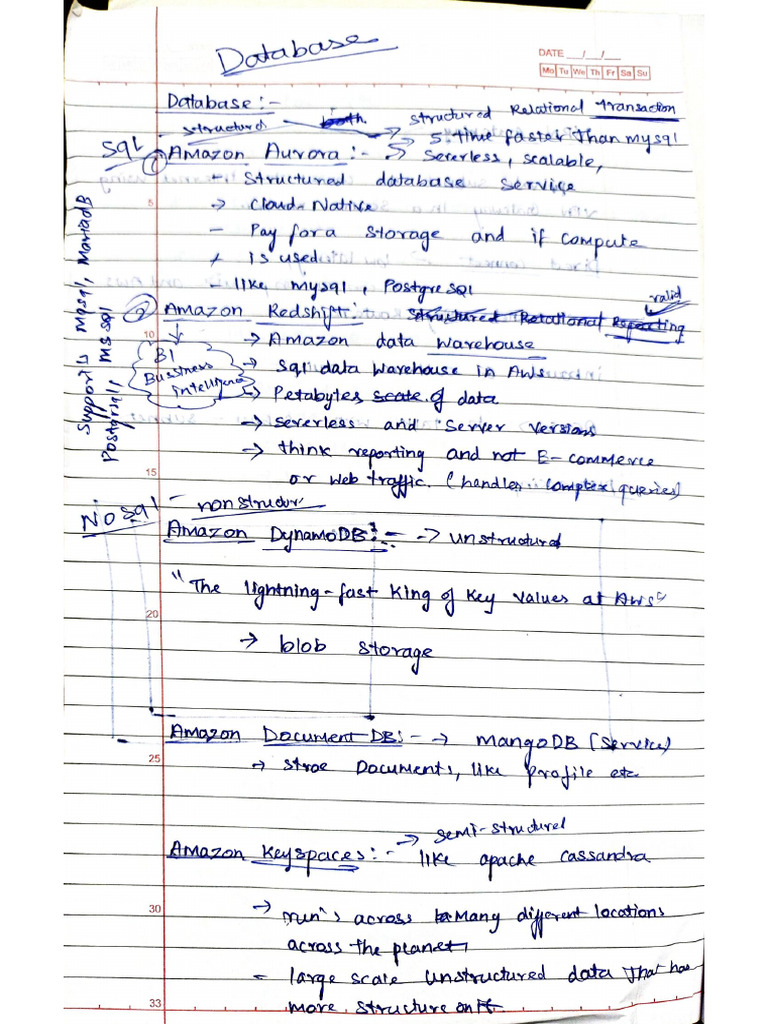 Database
DATE __/__/__
Mo Tu We Th Fr Sa Su
Database :-
structured both structured Relational Transacion
5 time faster Than mysql
Sql
① Amazon Aurora :- Sererless, scalable,
- structured database service
5
→ cloud Native
- Pay for a storage and if compute
is used
- like mysql, PostgreSQL
Support's Mysql, MariadB
Postgrsql, MSSql
valid
② Amazon Redshift: structured Relational Reporting
10
→ Amazon data warehouse
BI
Bussiness
intelligence
→ Sql data warehouse in AWS
→ Petabytes scale of data
→ sererless and server versions
→ think reporting and not E-commerce
15
or web traffic. (handler complex queries)
NO sql - non structur
Amazon DynamoDB :- → unstructured
"The lightning-fast King of Key values at AWS"
20
→ blob storage
Amazon Document DB: - → MangoDB (service)
25
→ stroe Documents, like profile etc
→ semi-structurel
Amazon Keyspaces:- like apache cassandra
30
→ run's across Many different locations
across The planet
= large scale unstructured data That has
33
more structure on it